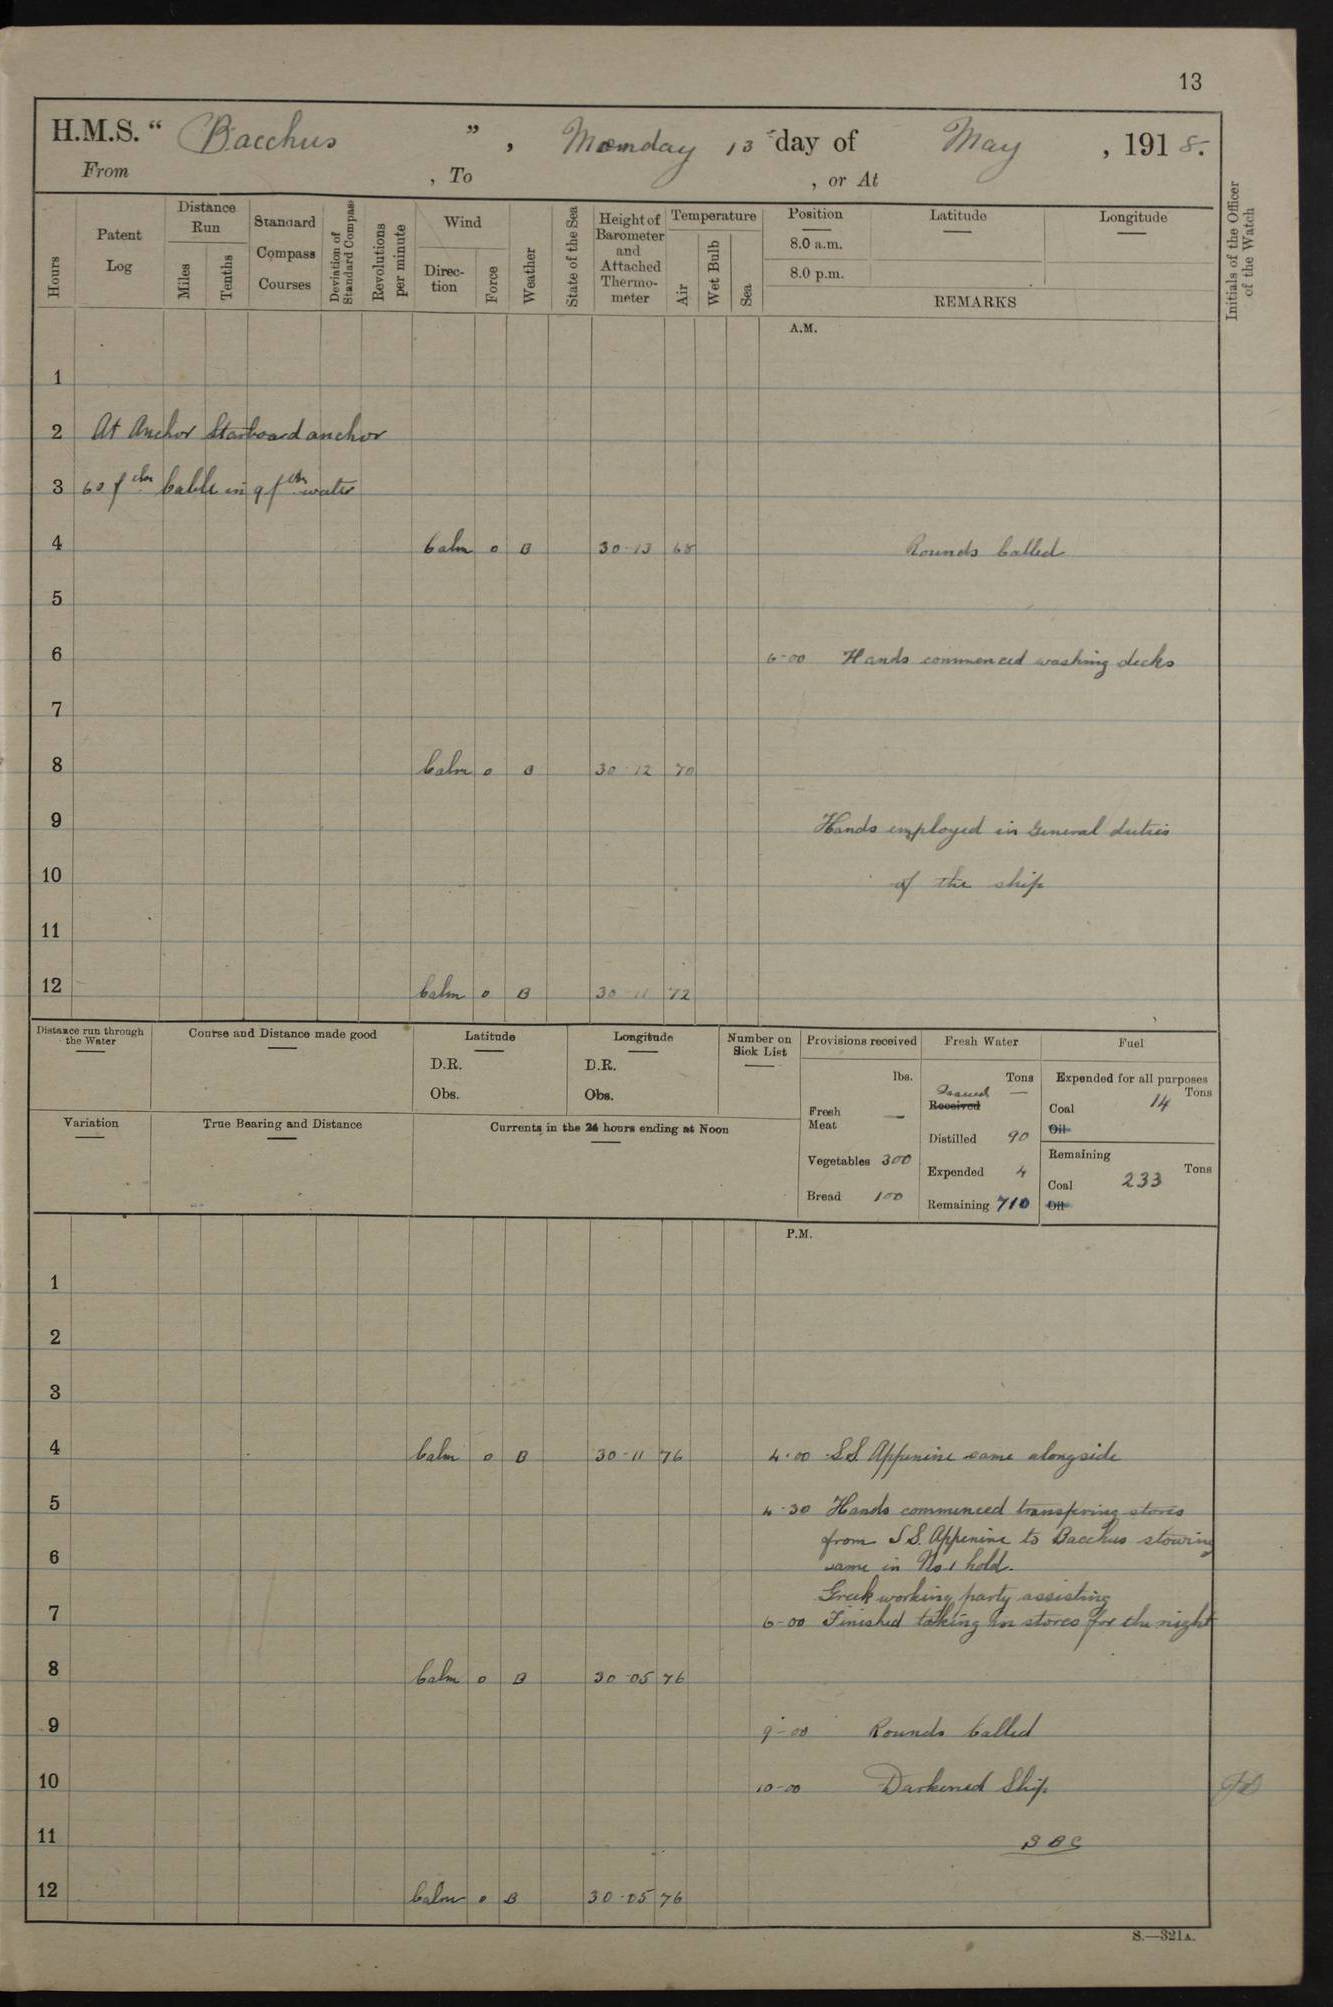 13
H.M.S. “ Bacchus ” , Monday 13th day of May , 1918.
From , To , or At
Hours
Patent Log
Distance Run
Miles
Tenths
Standard Compass Courses
Deviation of Standard Compass
Revolutions per minute
Wind
Direc-tion
Force
Weather
State of the Sea
Height of Barometer and Attached Thermo-meter
Temperature
Air
Wet Bulb
Sea
Position
8.0 a.m.
8.0 p.m.
Latitude
Longitude
REMARKS
Initials of the Officer of the Watch
A.M.
1
2 At Anchor Starboard anchor
3 60 fthm Cable in 9 fthm water
4 Calm 0 B 30-13 68 Rounds Called
5
6 6-00 Hands commenced washing decks
7
8 Calm 0 B 30-12 70
9 Hands employed in General duties
10 of the ship
11
12 Calm 0 B 30-11 72
Distance run through the Water
Course and Distance made good
Latitude
D.R.
Obs.
Longitude
D.R.
Obs.
Number on Sick List
Provisions received
lbs.
Fresh Meat —
Vegetables 300
Bread 100
Fresh Water
Tons
Issued —
Received
Distilled 90
Expended 4
Remaining 710
Fuel
Expended for all purposes
Tons
Coal 14
Oil
Remaining
Tons
Coal 233
Oil
Variation
True Bearing and Distance
Currents in the 24 hours ending at Noon
P.M.
1
2
3
4 Calm 0 B 30-11 76 4.00 S.S. Appenine came alongside
5 4-30 Hands commenced transfering stores
from S.S. Appenine to Bacchus stowing
6 same in No 1 hold.
Greek working party assisting
7 6-00 Finished taking in stores for the night
8 Calm 0 B 30-05 76
9 9-00 Rounds Called
10 10-00 Darkened Ship
11
12 Calm 0 B 30-05 76
S.—321A.